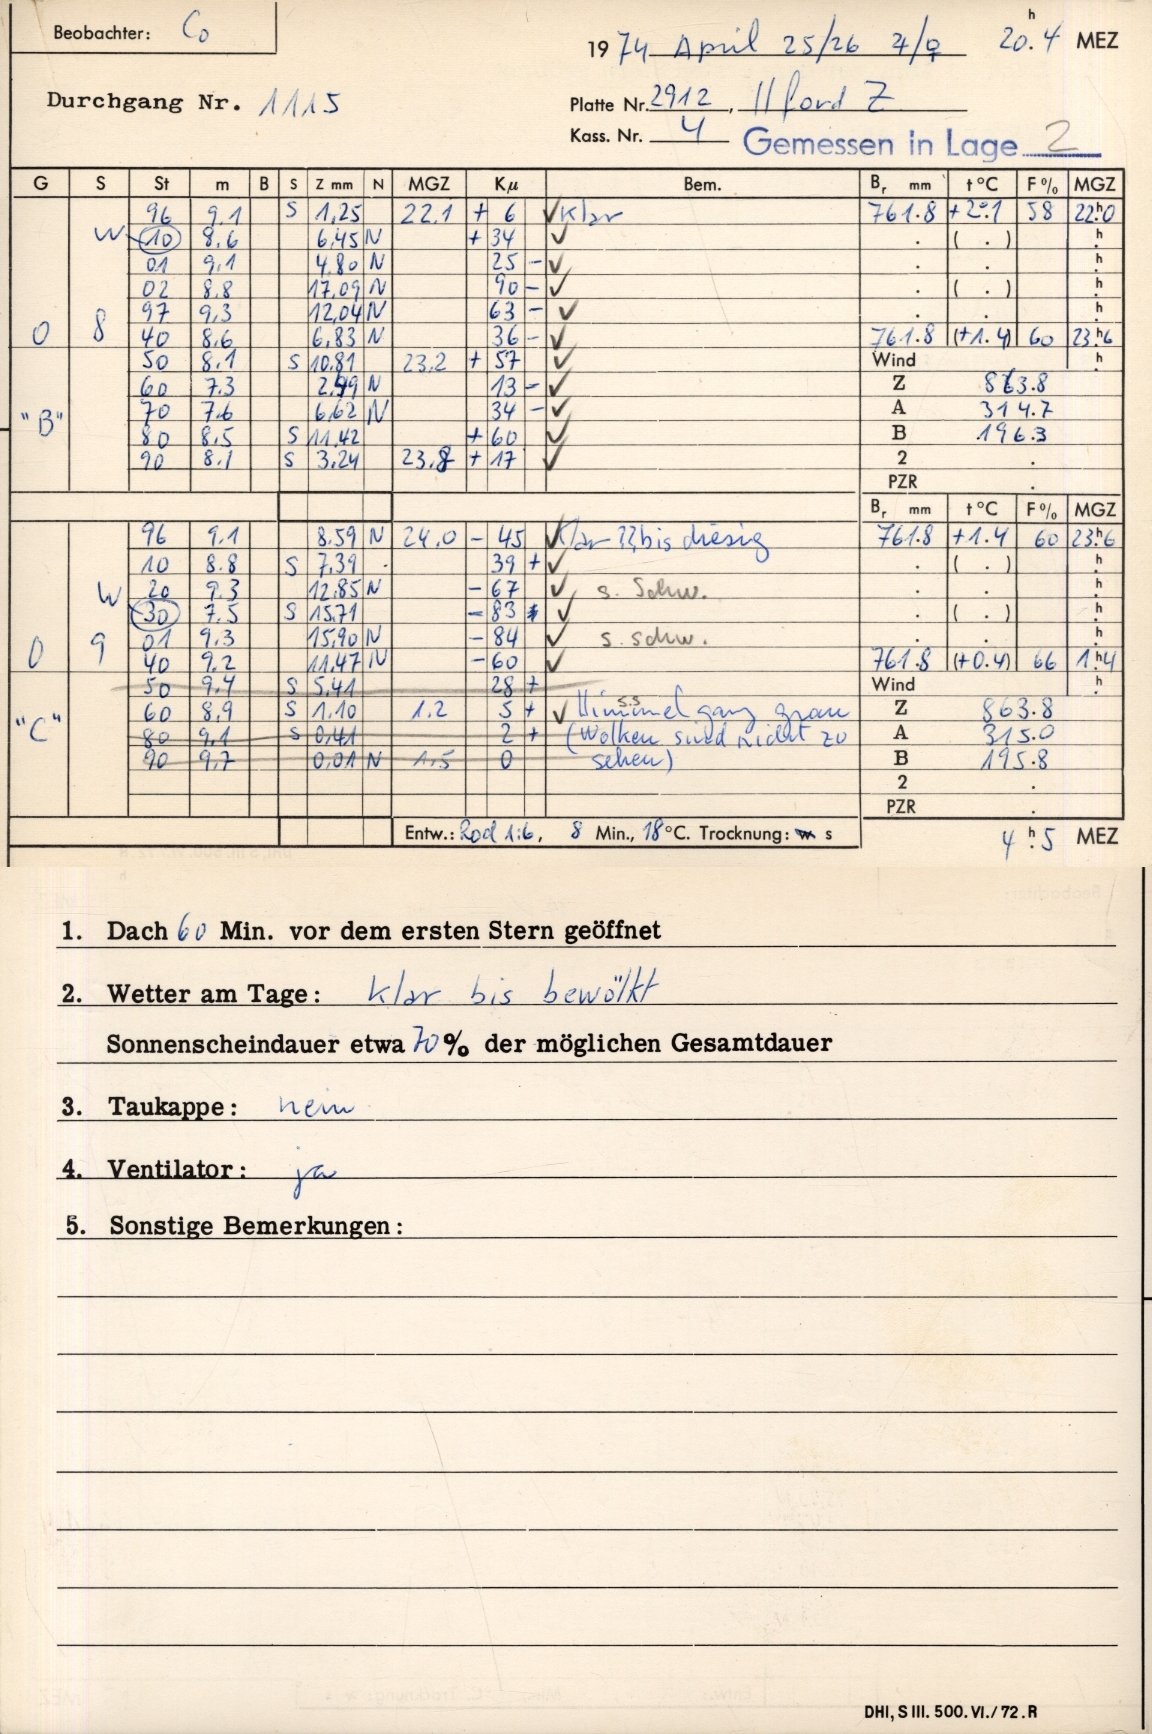 Beobachter: Co
1974 April 25/26 ♃/♀ 20.h4 MEZ
Durchgang Nr. 1115
Platte Nr. 2912, Ilford Z
Kass. Nr. 4 Gemessen in Lage 2
G S St m B S Z mm N MGZ Kμ Bem. Br mm t°C F% MGZ
96 9.1 S 1,25 22.1 + 6 ✓ klar 761.8 +2°.1 58 22h.0
W 10 8.6 6,45 N + 34 ✓ . ( . ) h.
01 9.1 4.80 N 25 - ✓ . . h.
02 8.8 17,09 N 90 - ✓ . ( . ) h.
97 9,3 12,04 N 63 - ✓ . . h.
0 8 40 8.6 6,83 N 36 - ✓ 761.8 (+1.4) 60 23h.6
50 8.1 S 10.81 23.2 + 57 ✓ Wind h.
60 7.3 2,99 N 13 - ✓ Z 863.8
"B" 70 7.6 6,62 N 34 - ✓ A 314.7
80 8,5 S 11.42 + 60 ✓ B 196.3
90 8.1 S 3,24 23.8 + 17 ✓ 2 .
PZR .
Br mm t°C F% MGZ
96 9.1 8.59 N 24.0 - 45 ✓ klar ?? bis diesig 761.8 +1.4 60 23h.6
10 8.8 S 7.39 . 39 + ✓ . ( . ) h.
W 20 9.3 12.85 N - 67 ✓ s. Schw. . . h.
30 7.5 S 15.71 - 83 ✓ . ( . ) h.
01 9.3 15,90 N - 84 ✓ s. schw. . . h.
0 9 40 9.2 11.47 N - 60 ✓ 761.8 (+0.4) 66 1h.4
50 9.4 S 5.41 28 + Wind h.
"C" 60 8,9 S 1.10 1.2 5 + ✓ s.s Himmel ganz grau Z 863.8
80 9.1 S 0,41 2 + (Wolken sind nicht zu A 315.0
90 9.7 0,01 N 1.5 0 sehen) B 195.8
2 .
PZR .
Entw.: Rod 1:6, 8 Min., 18 °C. Trocknung: w s 4h.5 MEZ
1. Dach 60 Min. vor dem ersten Stern geöffnet
2. Wetter am Tage: klar bis bewölkt
Sonnenscheindauer etwa 70% der möglichen Gesamtdauer
3. Taukappe: nein
4. Ventilator: ja
5. Sonstige Bemerkungen:
DHI, S III. 500. VI. / 72. R